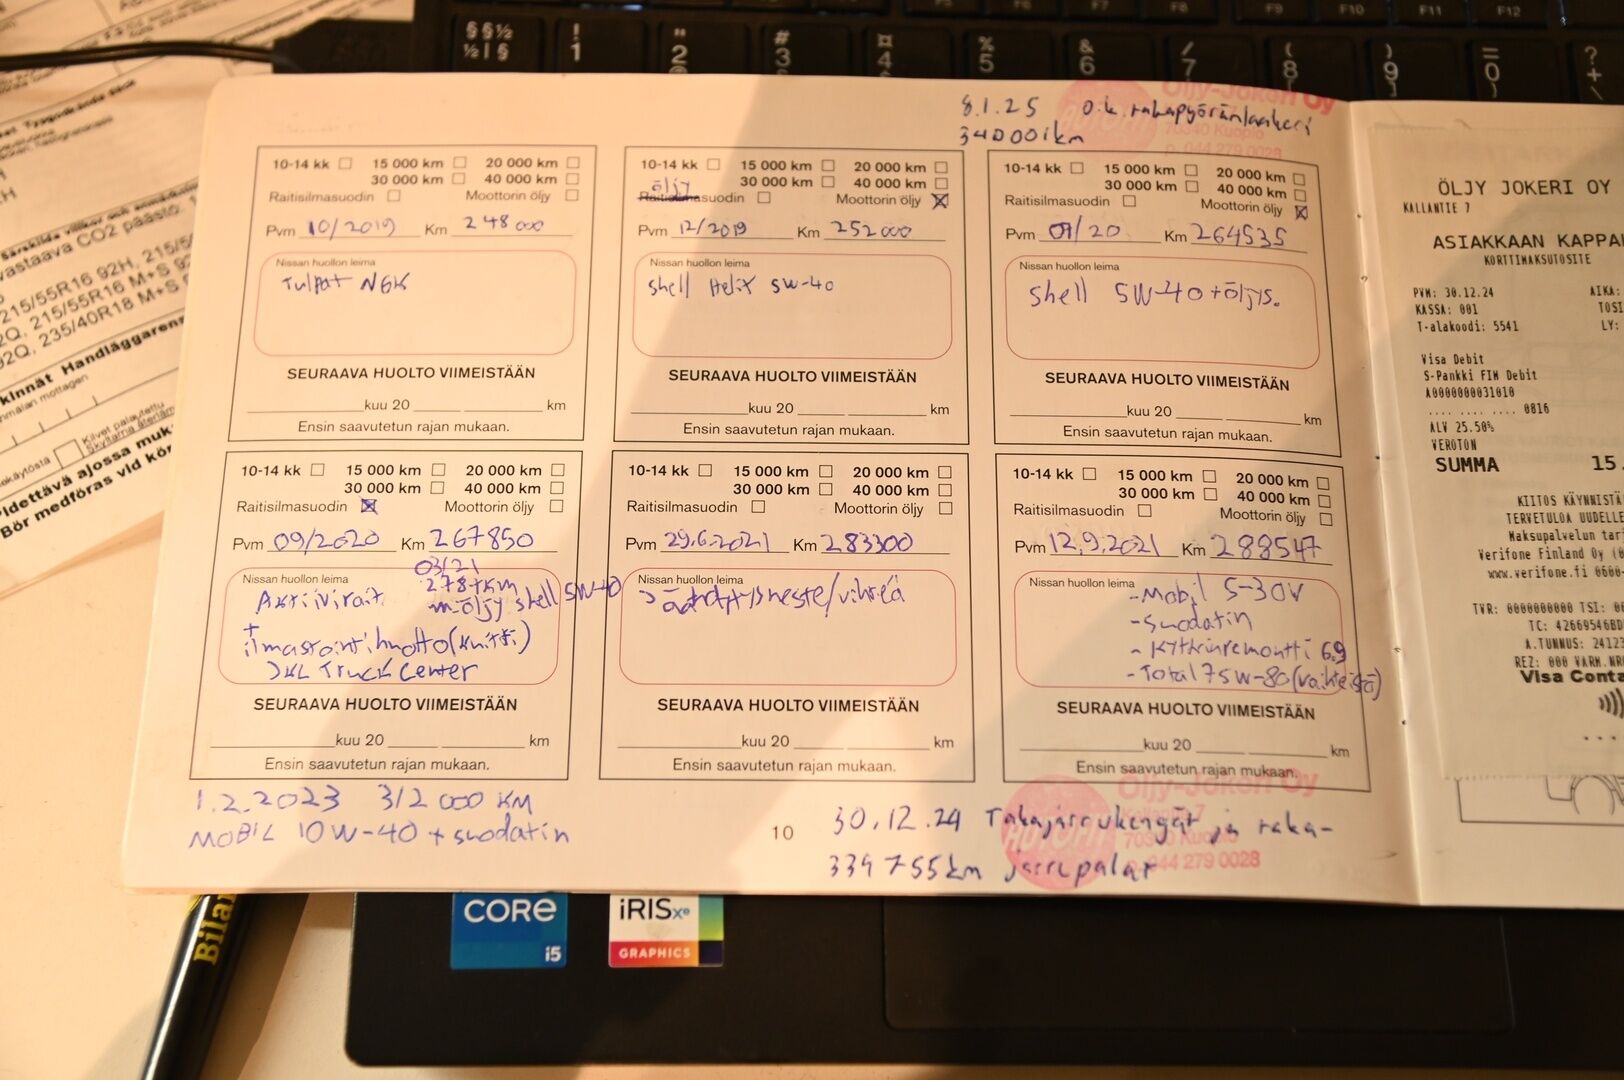 8.1.25 o.k. takapyöränlaakeri
340001km
Öljy-Jokeri Oy
70340 Kuopio
p. 044 279 0028
10-14 kk 15 000 km 20 000 km
30 000 km 40 000 km
Raitisilmasuodin Moottorin öljy
Pvm 10/2019 Km 248 000
Nissan huollon leima
Tulpat NGK
SEURAAVA HUOLTO VIIMEISTÄÄN
kuu 20 km
Ensin saavutetun rajan mukaan.
10-14 kk 15 000 km 20 000 km
30 000 km 40 000 km
öljy
Raitisilmasuodin Moottorin öljy
Pvm 12/2019 Km 252 000
Nissan huollon leima
Shell Helix 5W-40
SEURAAVA HUOLTO VIIMEISTÄÄN
kuu 20 km
Ensin saavutetun rajan mukaan.
10-14 kk 15 000 km 20 000 km
30 000 km 40 000 km
Raitisilmasuodin Moottorin öljy
Pvm 07/20 Km 264535
Nissan huollon leima
Shell 5W-40+öljys.
SEURAAVA HUOLTO VIIMEISTÄÄN
kuu 20 km
Ensin saavutetun rajan mukaan.
10-14 kk 15 000 km 20 000 km
30 000 km 40 000 km
Raitisilmasuodin Moottorin öljy
Pvm 09/2020 Km 267850
03/21
Nissan huollon leima 278tkm
m-öljy shell 5W-40
+
ilmastointihuolto(kuitti)
JKL Truck Center
SEURAAVA HUOLTO VIIMEISTÄÄN
kuu 20 km
Ensin saavutetun rajan mukaan.
10-14 kk 15 000 km 20 000 km
30 000 km 40 000 km
Raitisilmasuodin Moottorin öljy
Pvm 29.6.2021 Km 283300
Nissan huollon leima
Jäähdytysneste/vihreä
SEURAAVA HUOLTO VIIMEISTÄÄN
kuu 20 km
Ensin saavutetun rajan mukaan.
10-14 kk 15 000 km 20 000 km
30 000 km 40 000 km
Raitisilmasuodin Moottorin öljy
Pvm 12.9.2021 Km 288547
Nissan huollon leima
-Mobil 5-30V
-suodatin
-Kytkinremontti 6.9
-Total 75W-80(vaihteisto)
SEURAAVA HUOLTO VIIMEISTÄÄN
kuu 20 km
Ensin saavutetun rajan mukaan.
1.2.2023 312 000 KM
MOBIL 10W-40 + suodatin
10
30.12.24 Takajarrukengät ja taka-
339 755km jarrupalat
Öljy-Jokeri Oy
Kallantie 7
70340 Kuopio
p. 044 279 0028
ÖLJY JOKERI OY
KALLANTIE 7
ASIAKKAAN KAPPA
KORTTIMAKSUTOSITE
PVM: 30.12.24 AIKA:
KASSA: 001 TOSI
T-alakoodi: 5541 LY:
Visa Debit
S-Pankki FIN Debit
A0000000031010
.... .... .... 0816
ALV 25.50%
VEROTON
SUMMA 15
KIITOS KÄYNNISTÄ
TERVETULOA UUDELLE
Maksupalvelun tar
Verifone Finland Oy (0
www.verifone.fi 0600-
TVR: 0000000000 TSI: 00
TC: 42669546BD
A.TUNNUS: 24123
REZ: 000 VARM.NR
Visa Conta
vastaava CO2 päästö.
215/55R16 92H, 215/5
kinnät Handläggarenn
Kilvet palautettu
idettävä ajossa muk
Bör medföras vid kör
Bilar
§ § ½ ! " # ¤ % & / ( ) = ?
½ | § 1 2 3 4 5 6 7 8 9 0 +
F9 F10 F11 F12
CORE
i5
iRISxe
GRAPHICS